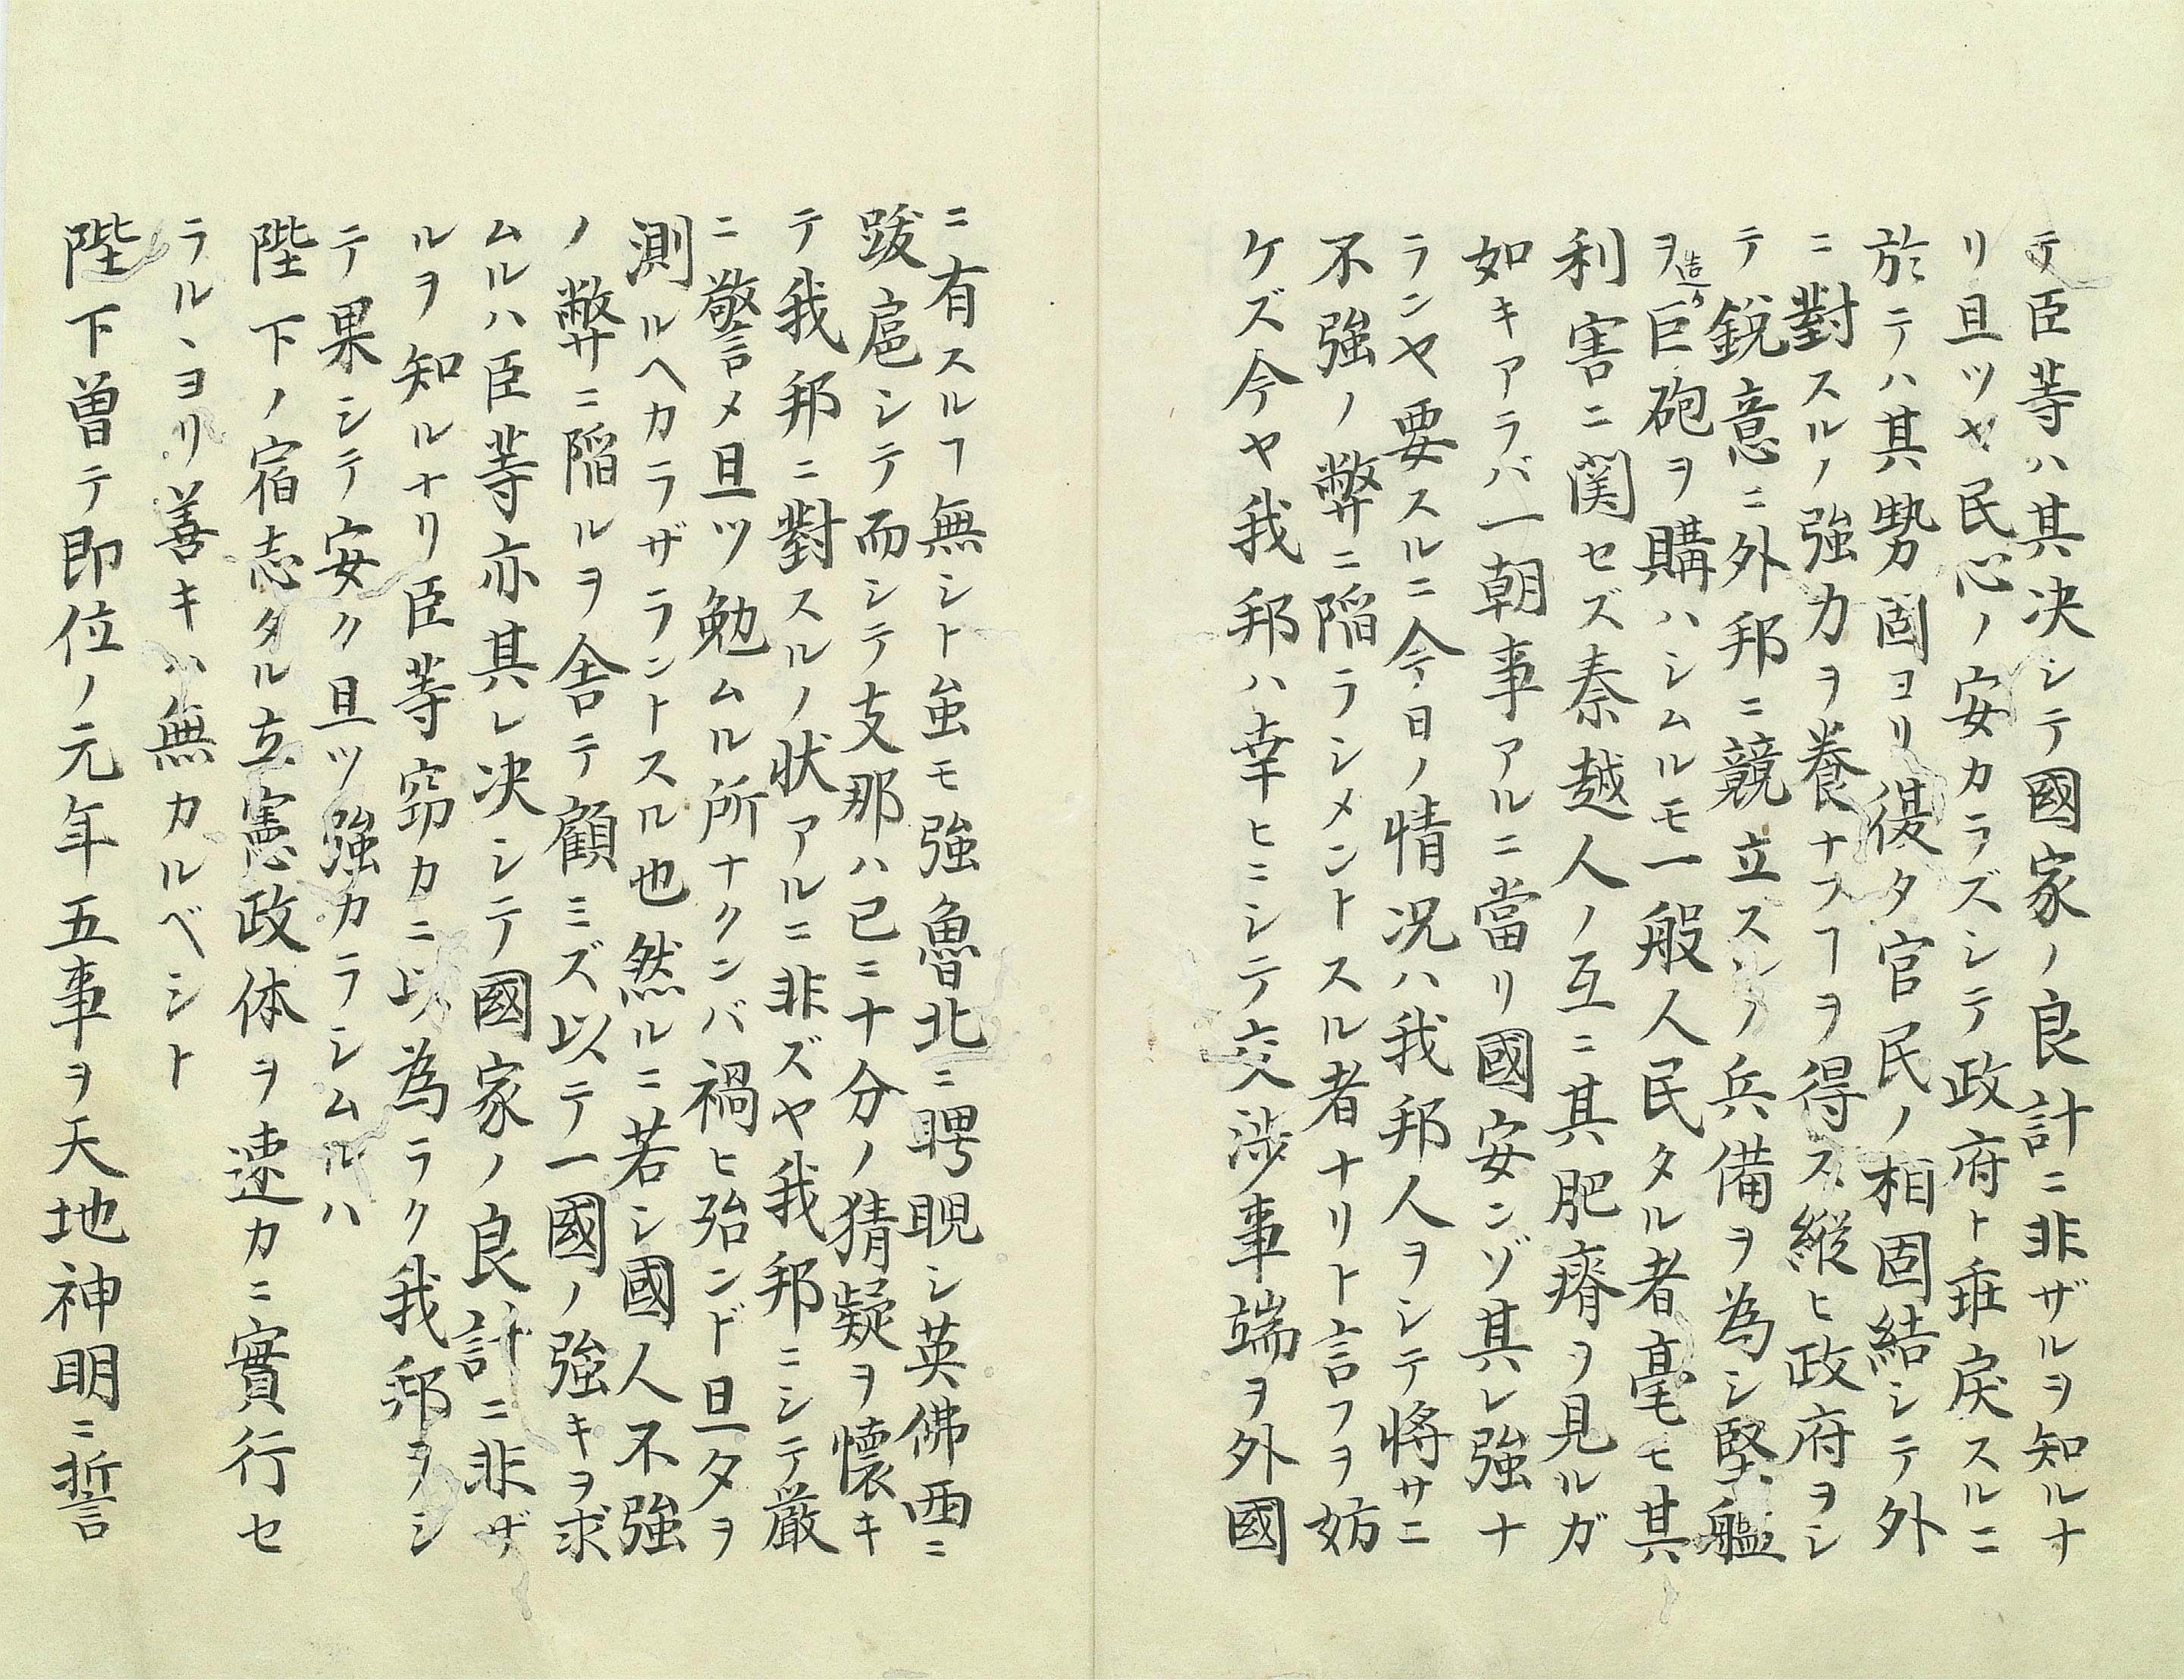 テ臣等ハ其決シテ國家ノ良計ニ非ザルヲ知ルナ
リ且ツヤ民心ノ安カラズシテ政府ト乖戻スルニ
於テハ其勢固ヨリ復タ官民ノ相固結シテ外
ニ對スルノ強力ヲ養ナフヿヲ得ス縦ヒ政府ヲシ
テ鋭意ニ外邦ニ競立スルノ兵備ヲ為シ堅艦
ヲ造リ巨砲ヲ購ハシムルモ一般人民タル者毫モ其
利害ニ関セズ秦越人ノ互ニ其肥瘠ヲ見ルガ
如キアラバ一朝事アルニ當リ國安ンゾ其レ強ナ
ランヤ要スルニ今日ノ情況ハ我邦人ヲシテ將サニ
不強ノ弊ニ陥ラシメントスル者ナリト言フヲ妨
ケズ今ヤ我邦ハ幸ヒニシテ交渉事端ヲ外國
ニ有スルヿ無シト虽モ強魯北ニ睥睨シ英佛西ニ
跋扈シテ而シテ支那ハ已ニ十分ノ猜疑ヲ懷キ
テ我邦ニ對スルノ状アルニ非ズヤ我邦ニシテ厳
ニ警メ且ツ勉ムル所ナクンバ禍ヒ殆ンド旦タヲ
測ルヘカラザラントスル也然ルニ若シ國人不強
ノ弊ニ陥ルヲ舎テ顧ミズ以テ一國ノ強キヲ求
ムルハ臣等亦其レ決シテ國家ノ良計ニ非ザ
ルヲ知ルナリ臣等窃カニ以為ラク我邦ヲシ
テ果シテ安ク且ツ強カラシムルハ
陛下ノ宿志タル立憲政体ヲ速カニ實行セ
ラルヽヨリ善キハ無カルベシト
陛下曽テ即位ノ元年五事ヲ天地神明ニ誓